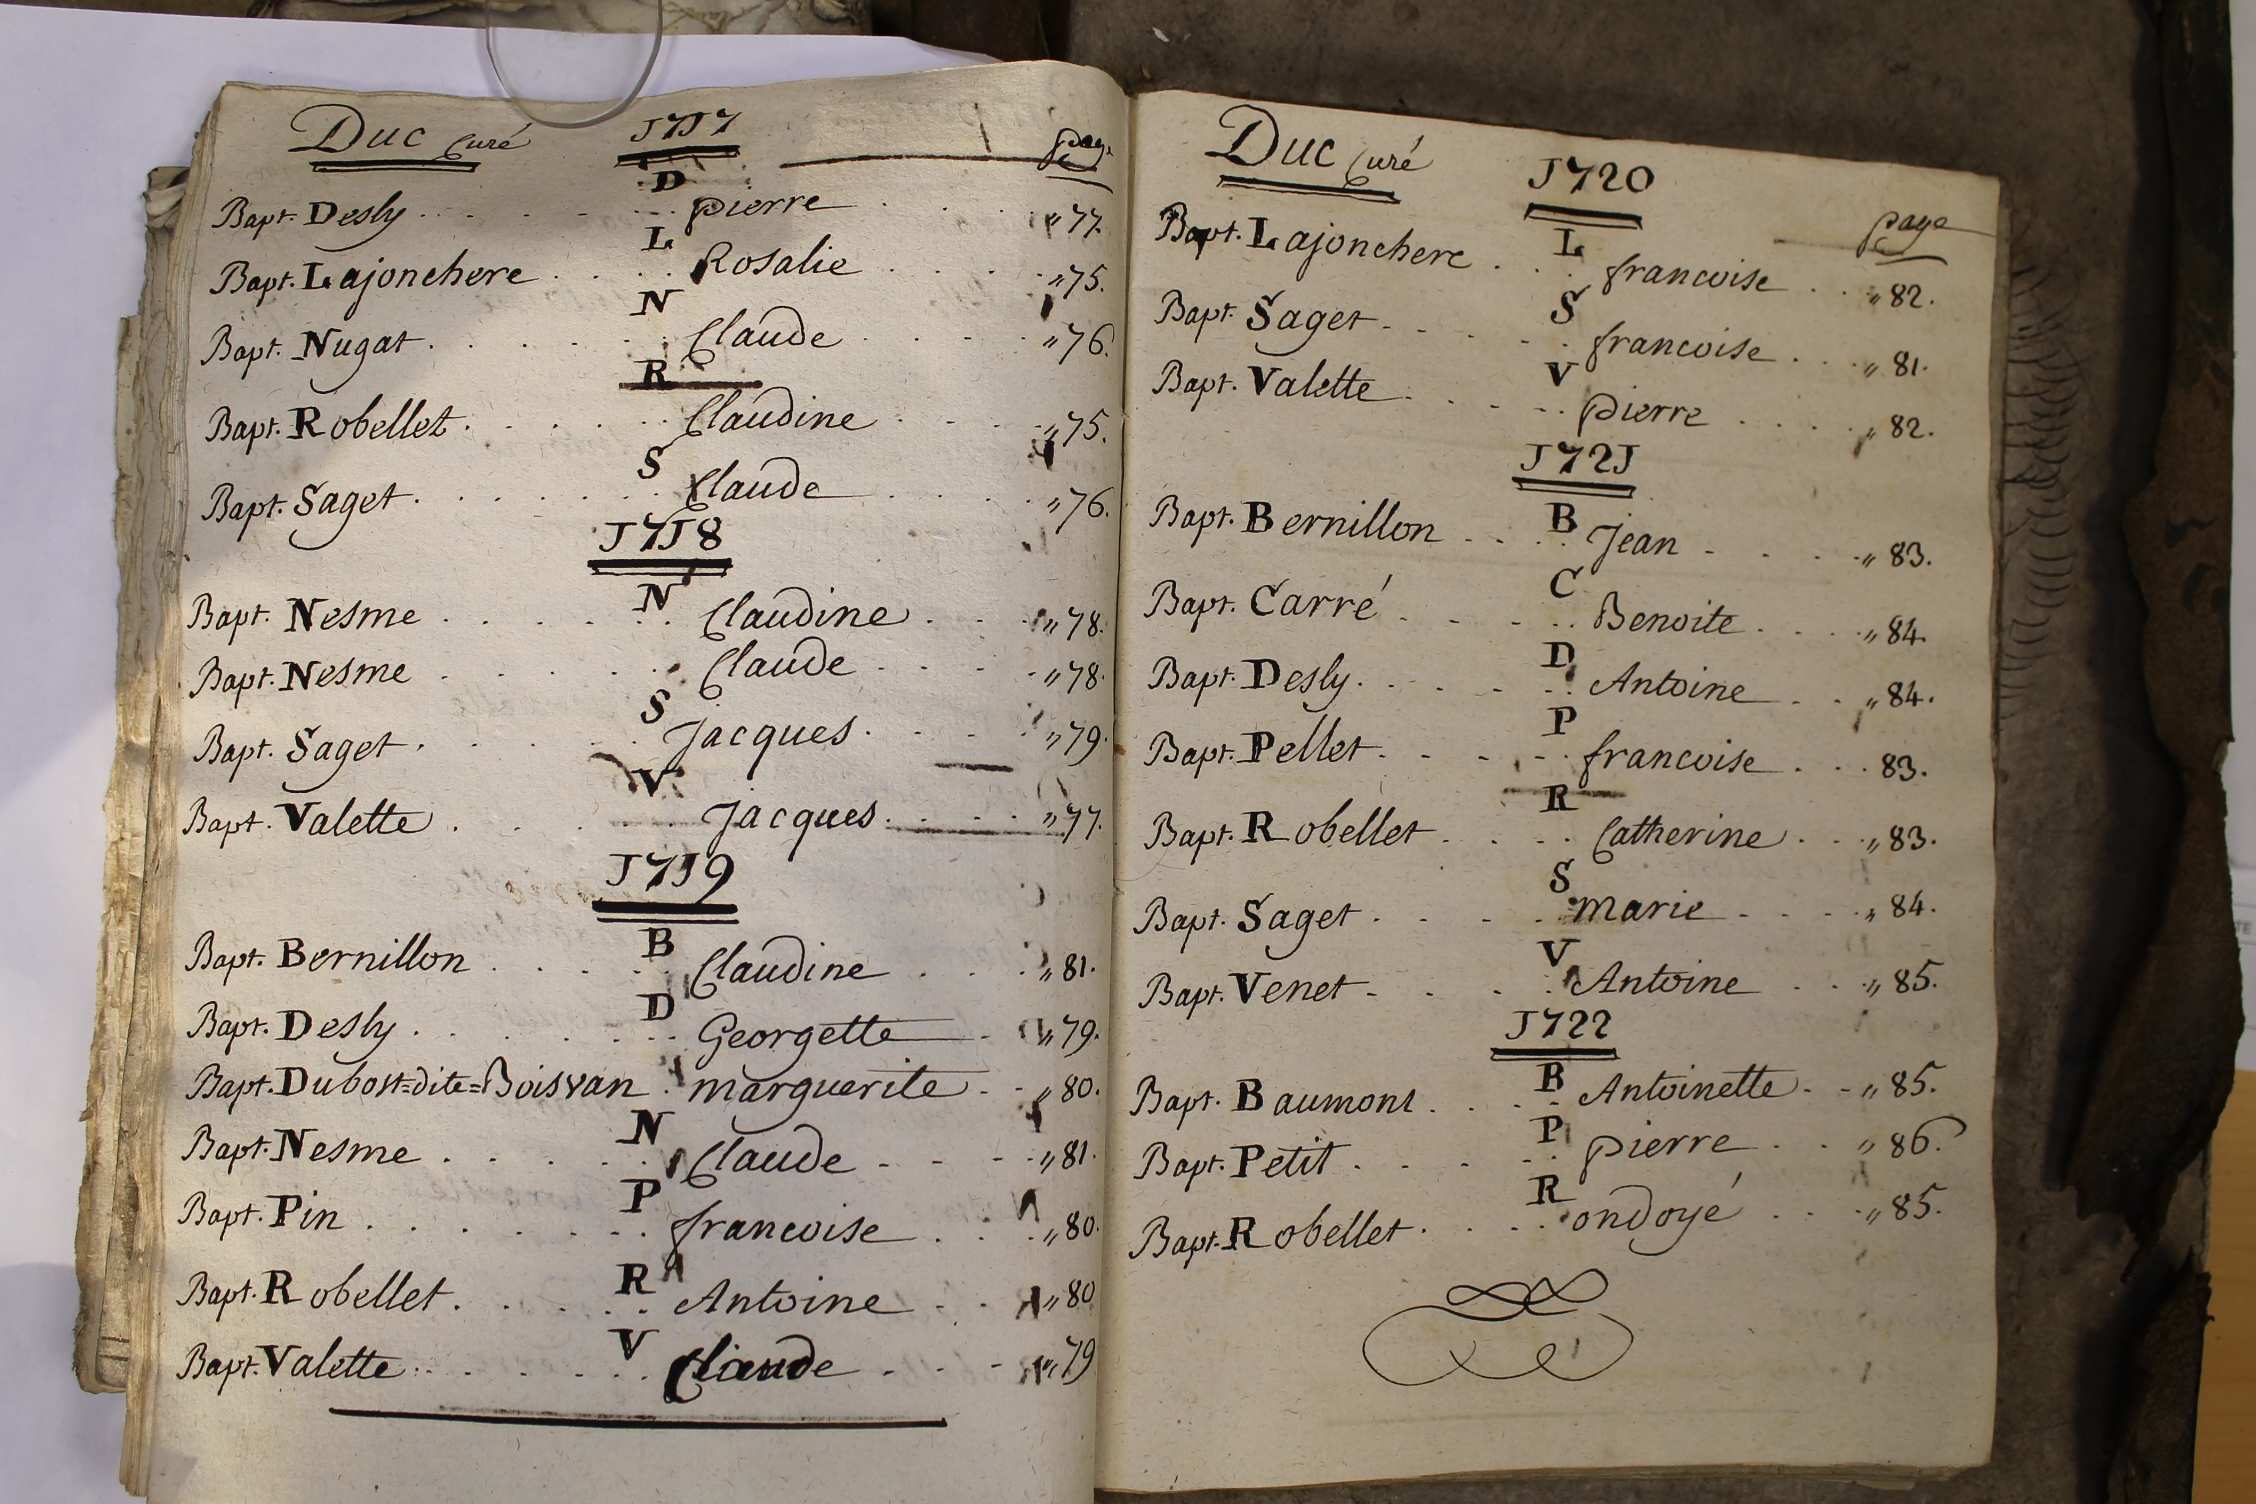 Duc Curé 1717 page
D
Bapt. Desly . . . . . pierre . . . . " 77.
L
Bapt. Lajonchere . . . . Rosalie . . . . " 75.
N
Bapt. Nugat . . . . . . Claude . . . . " 76.
R
Bapt. Robellet . . . . . . Claudine . . . . " 75.
S
Bapt. Saget . . . . . . Claude . . . . " 76.
1718
N
Bapt. Nesme . . . . . . Claudine . . . " 78.
Bapt. Nesme . . . . . . Claude . . . . " 78.
S
Bapt. Saget . . . . . Jacques . . . . " 79.
V
Bapt. Valette . . . . . . Jacques . . . . " 77.
1719
B
Bapt. Bernillon . . . . . Claudine . . . " 81.
D
Bapt. Desly . . . . . . Georgette . " 79.
Bapt. Dubost=dite=Boisvan . marguerite . . " 80.
N
Bapt. Nesme . . . . . Claude . . . . " 81.
P
Bapt. Pin . . . . . . . francoise . . . . " 80.
R
Bapt. Robellet . . . . . Antoine . . " 80
V
Bapt. Valette . . . . . . Claude . . . " 79
Duc Curé 1720
page
L
Bapt. Lajonchere . . . francoise . . . " 82.
S
Bapt. Saget . . . . . francoise . . . " 81.
V
Bapt. Valette . . . . . pierre . . . . " 82.
1721
B
Bapt. Bernillon . . . . Jean . . . . . " 83.
C
Bapt. Carré . . . . . Benoite . . . . " 84.
D
Bapt. Desly . . . . . . Antoine . . " 84.
P
Bapt. Pellet . . . . . francoise . . . 83.
R
Bapt. Robellet . . . . Catherine . . . " 83.
S
Bapt. Saget . . . . marie . . . . " 84.
V
Bapt. Venet . . . . . Antoine . . . " 85.
1722
B
Bapt. Baumont . . . . Antoinette . . " 85.
P
Bapt. Petit . . . . . pierre . . " 86.
R
Bapt. Robellet . . . . ondoyé . . . " 85.